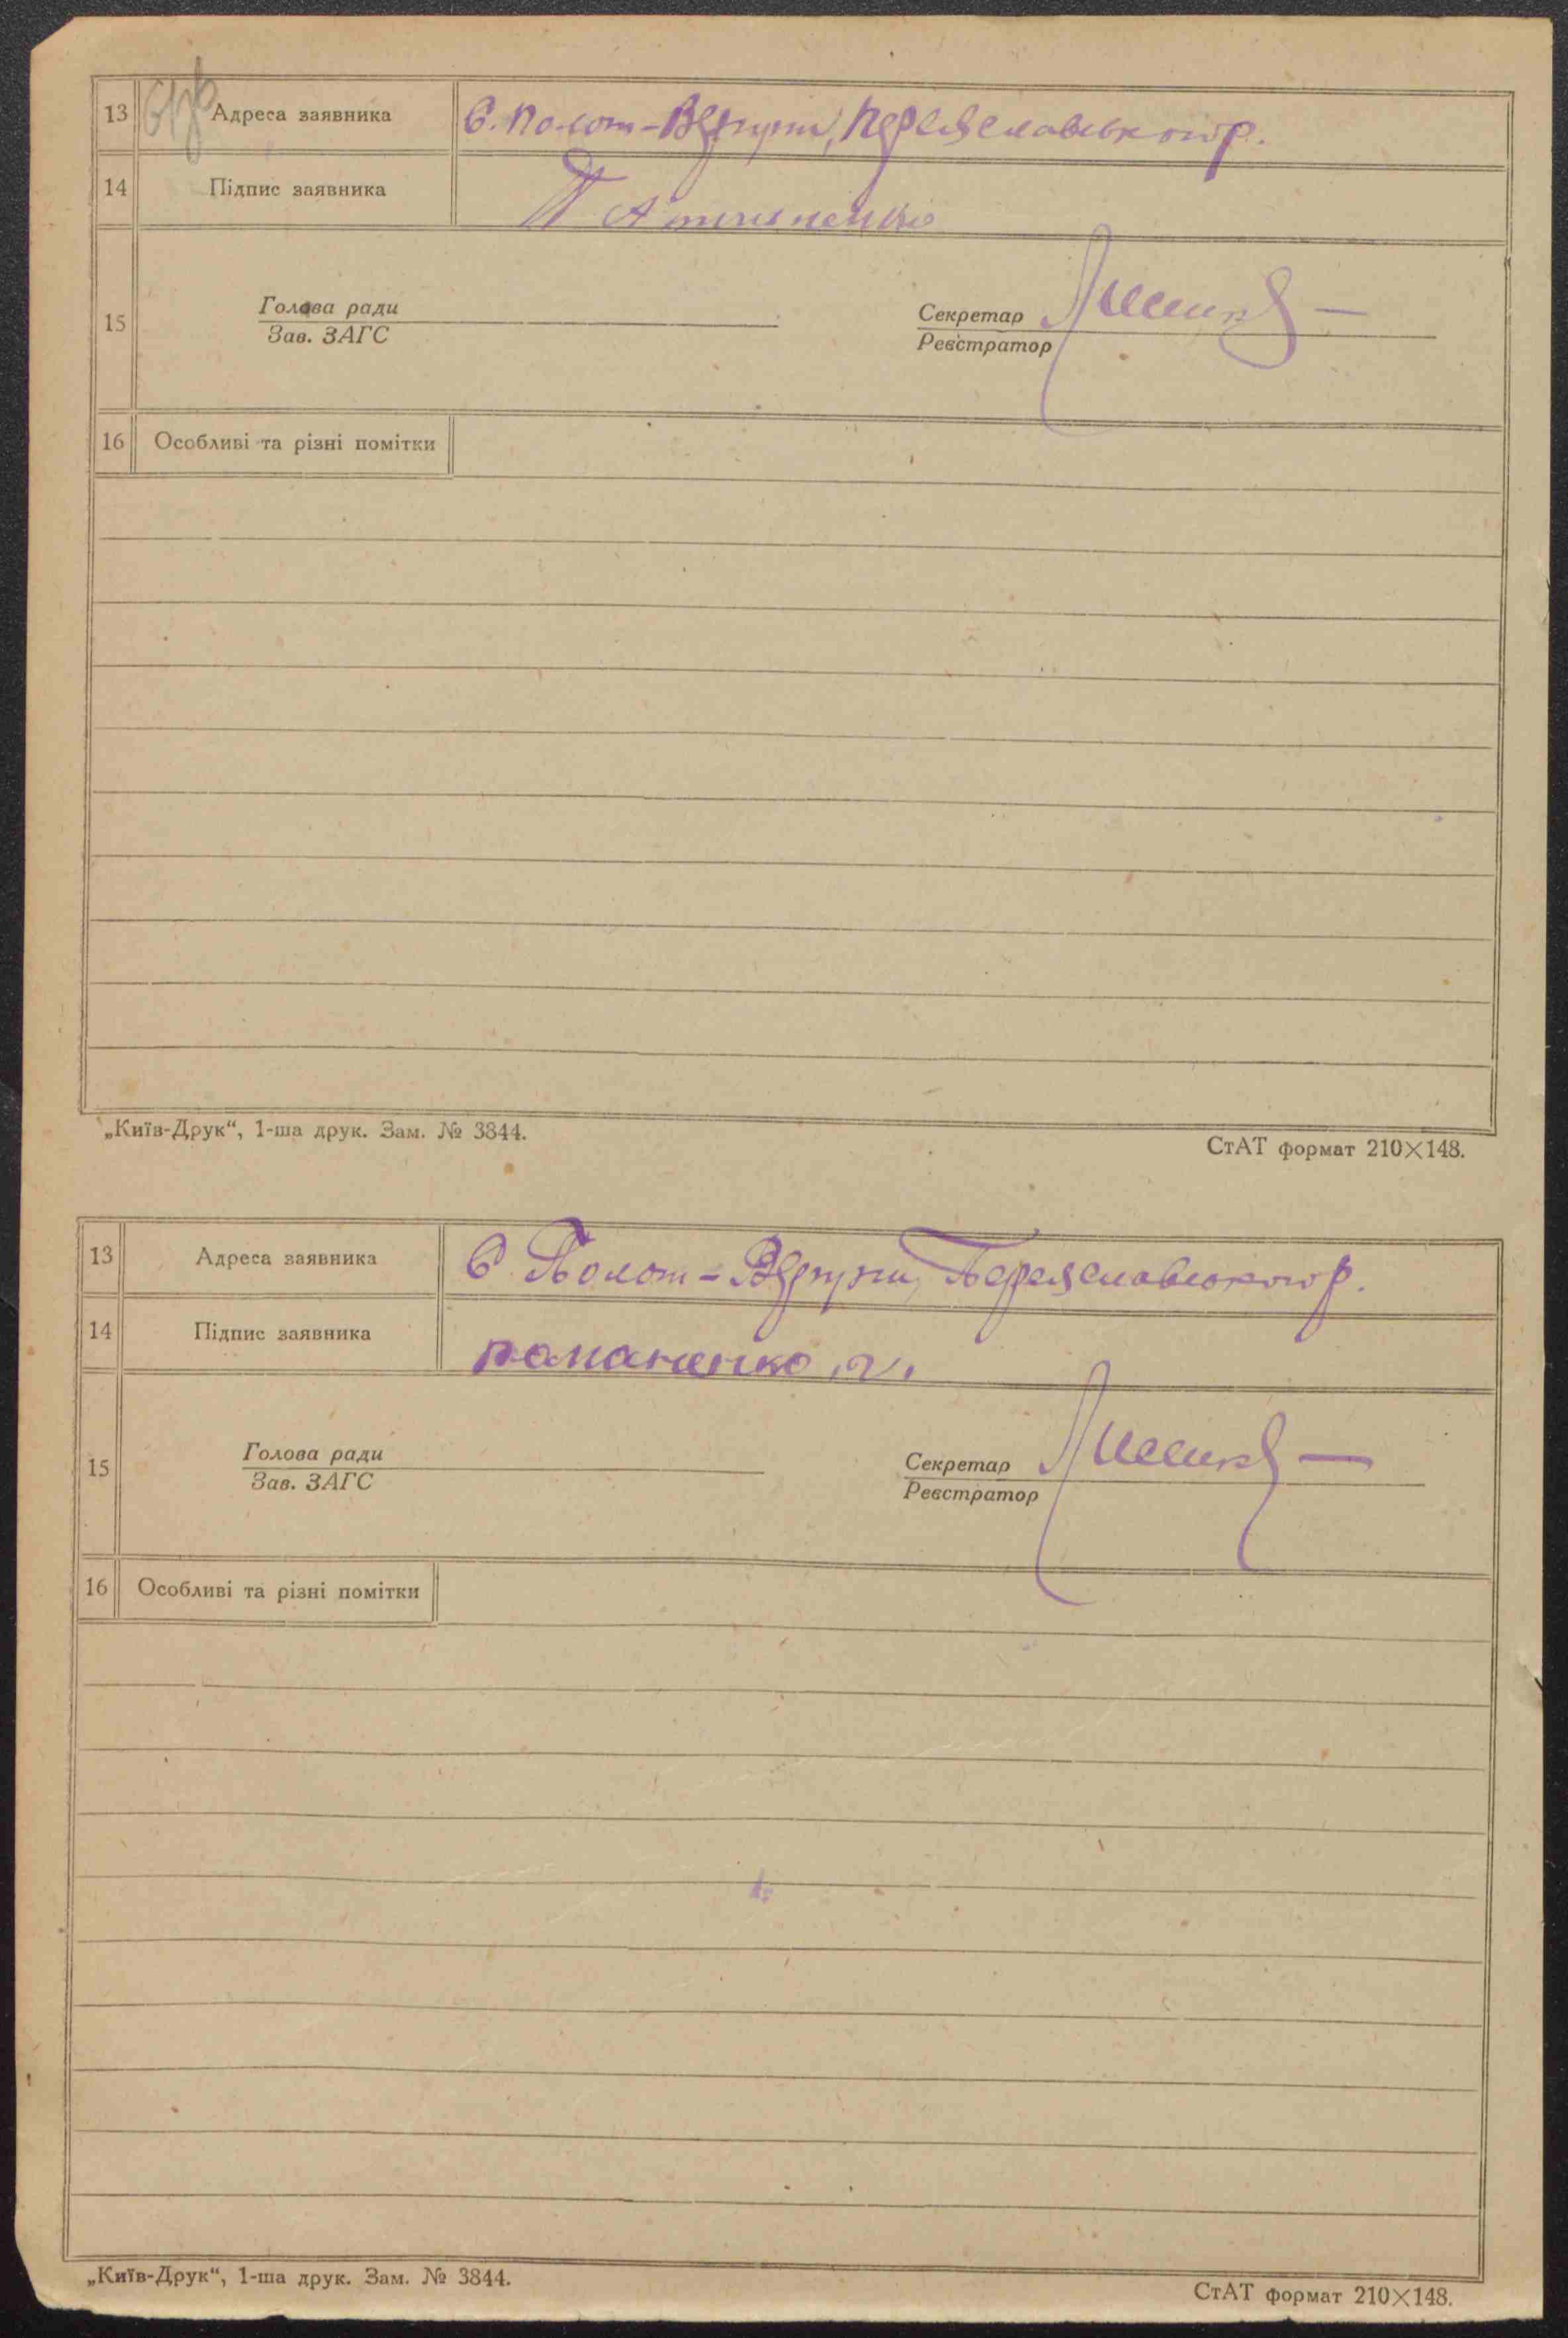 13 Адреса заявника С. Полот-Вергуни, Переяславського р.
14 Підпис заявника
15 Голова ради Секретар
Зав. ЗАГС Реєстратор
16 Особливі та різні помітки
„Київ-Друк“, 1-ша друк. Зам. № 3844.
СтАТ формат 210×148.
13 Адреса заявника С. Полот-Вергуни, Переяславського р.
14 Підпис заявника романенко
15 Голова ради Секретар
Зав. ЗАГС Реєстратор
16 Особливі та різні помітки
„Київ-Друк“, 1-ша друк. Зам. № 3844.
СтАТ формат 210×148.